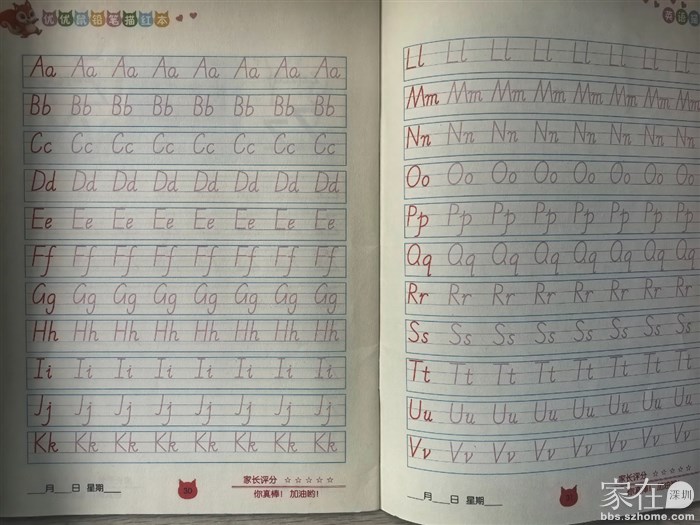 优优鼠铅笔描红本
Aa Aa Aa Aa Aa Aa Aa Aa
Bb Bb Bb Bb Bb Bb Bb Bb
Cc Cc Cc Cc Cc Cc Cc Cc
Dd Dd Dd Dd Dd Dd Dd Dd
Ee Ee Ee Ee Ee Ee Ee Ee
Ff Ff Ff Ff Ff Ff Ff Ff
Gg Gg Gg Gg Gg Gg Gg Gg
Hh Hh Hh Hh Hh Hh Hh Hh
Ii Ii Ii Ii Ii Ii Ii Ii
Jj Jj Jj Jj Jj Jj Jj Jj
Kk Kk Kk Kk Kk Kk Kk Kk
___月___日 星期___
30
家长评分 ☆☆☆☆☆
你真棒! 加油哟!
英语
Ll Ll Ll Ll Ll Ll Ll Ll
Mm Mm Mm Mm Mm Mm Mm Mm
Nn Nn Nn Nn Nn Nn Nn Nn
Oo Oo Oo Oo Oo Oo Oo Oo
Pp Pp Pp Pp Pp Pp Pp Pp
Qq Qq Qq Qq Qq Qq Qq Qq
Rr Rr Rr Rr Rr Rr Rr Rr
Ss Ss Ss Ss Ss Ss Ss Ss
Tt Tt Tt Tt Tt Tt Tt Tt
Uu Uu Uu Uu Uu Uu Uu Uu
Vv Vv Vv Vv Vv Vv Vv Vv
___月___日 星期___
家长评分
你真棒!
家在深圳
bbs.szhome.com